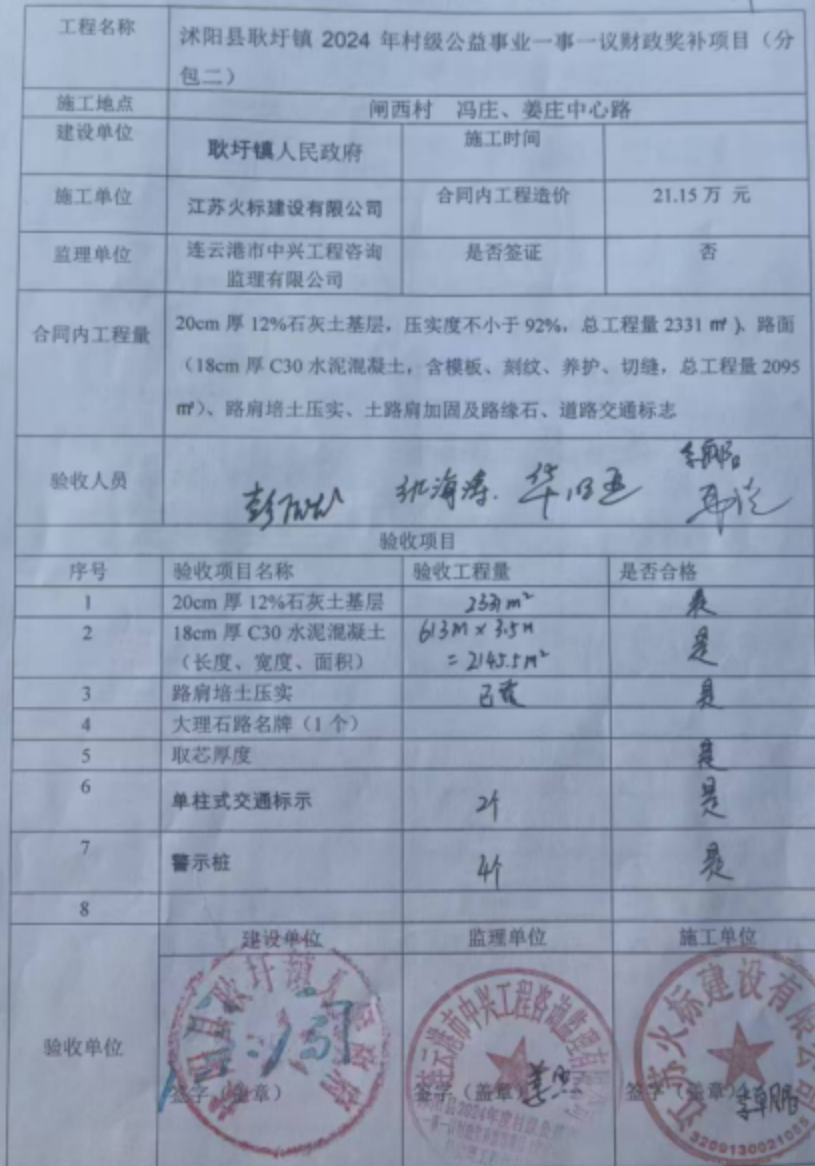 工程名称
沭阳县耿圩镇 2024 年村级公益事业一事一议财政奖补项目（分
包二）
施工地点 闸西村 冯庄、姜庄中心路
建设单位 耿圩镇人民政府 施工时间
施工单位 江苏火标建设有限公司 合同内工程造价 21.15 万 元
监理单位 连云港市中兴工程咨询 是否签证 否
监理有限公司
合同内工程量
20cm 厚 12%石灰土基层，压实度不小于 92%，总工程量 2331 ㎡）、路面
（18cm 厚 C30 水泥混凝土，含模板、刻纹、养护、切缝，总工程量 2095
㎡）、路肩培土压实、土路肩加固及路缘石、道路交通标志
验收人员 张海涛
验收项目
序号 验收项目名称 验收工程量 是否合格
1 20cm 厚 12%石灰土基层 2331m² 是
2 18cm 厚 C30 水泥混凝土 613m×3.5m 是
（长度、宽度、面积） =2145.5m²
3 路肩培土压实 是
4 大理石路名牌（1 个）
5 取芯厚度 是
6 单柱式交通标示 2个 是
7 警示桩 4个 是
8
验收单位
建设单位 监理单位 施工单位
沭阳县耿圩镇人民政府
连云港市中兴工程咨询监理有限公司
江苏火标建设有限公司
签字（盖章） 签字（盖章） 签字（盖章）
3209130021085